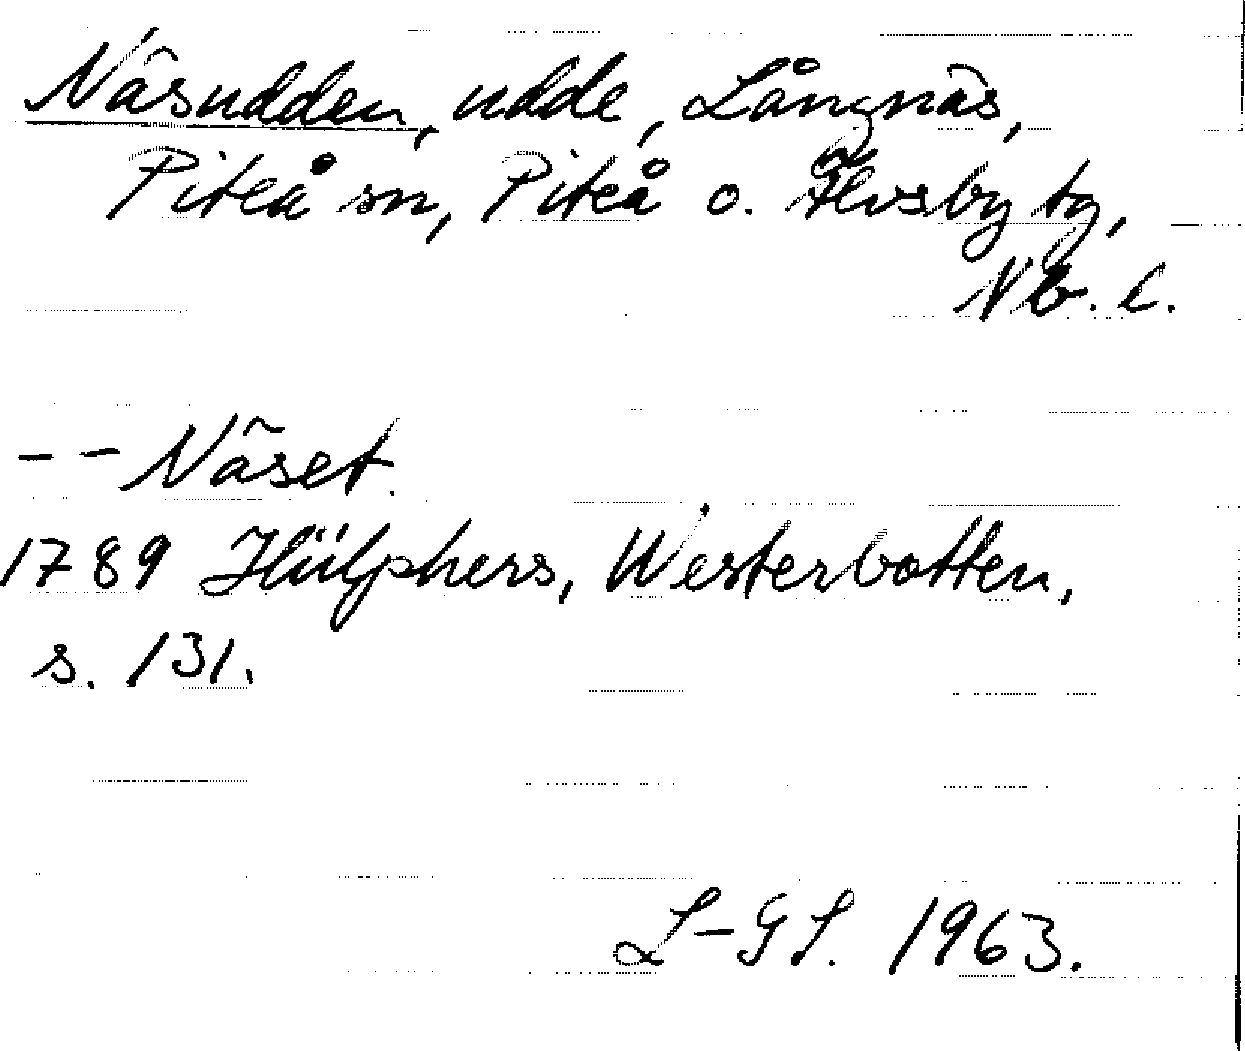 Näsudden, udde, Långnäs,
Piteå sn, Piteå o. Älvsby tg,
Nb. l.
-- Näset.
1789 Hülphers, Westerbotten,
s. 131.
L-GL. 1963.